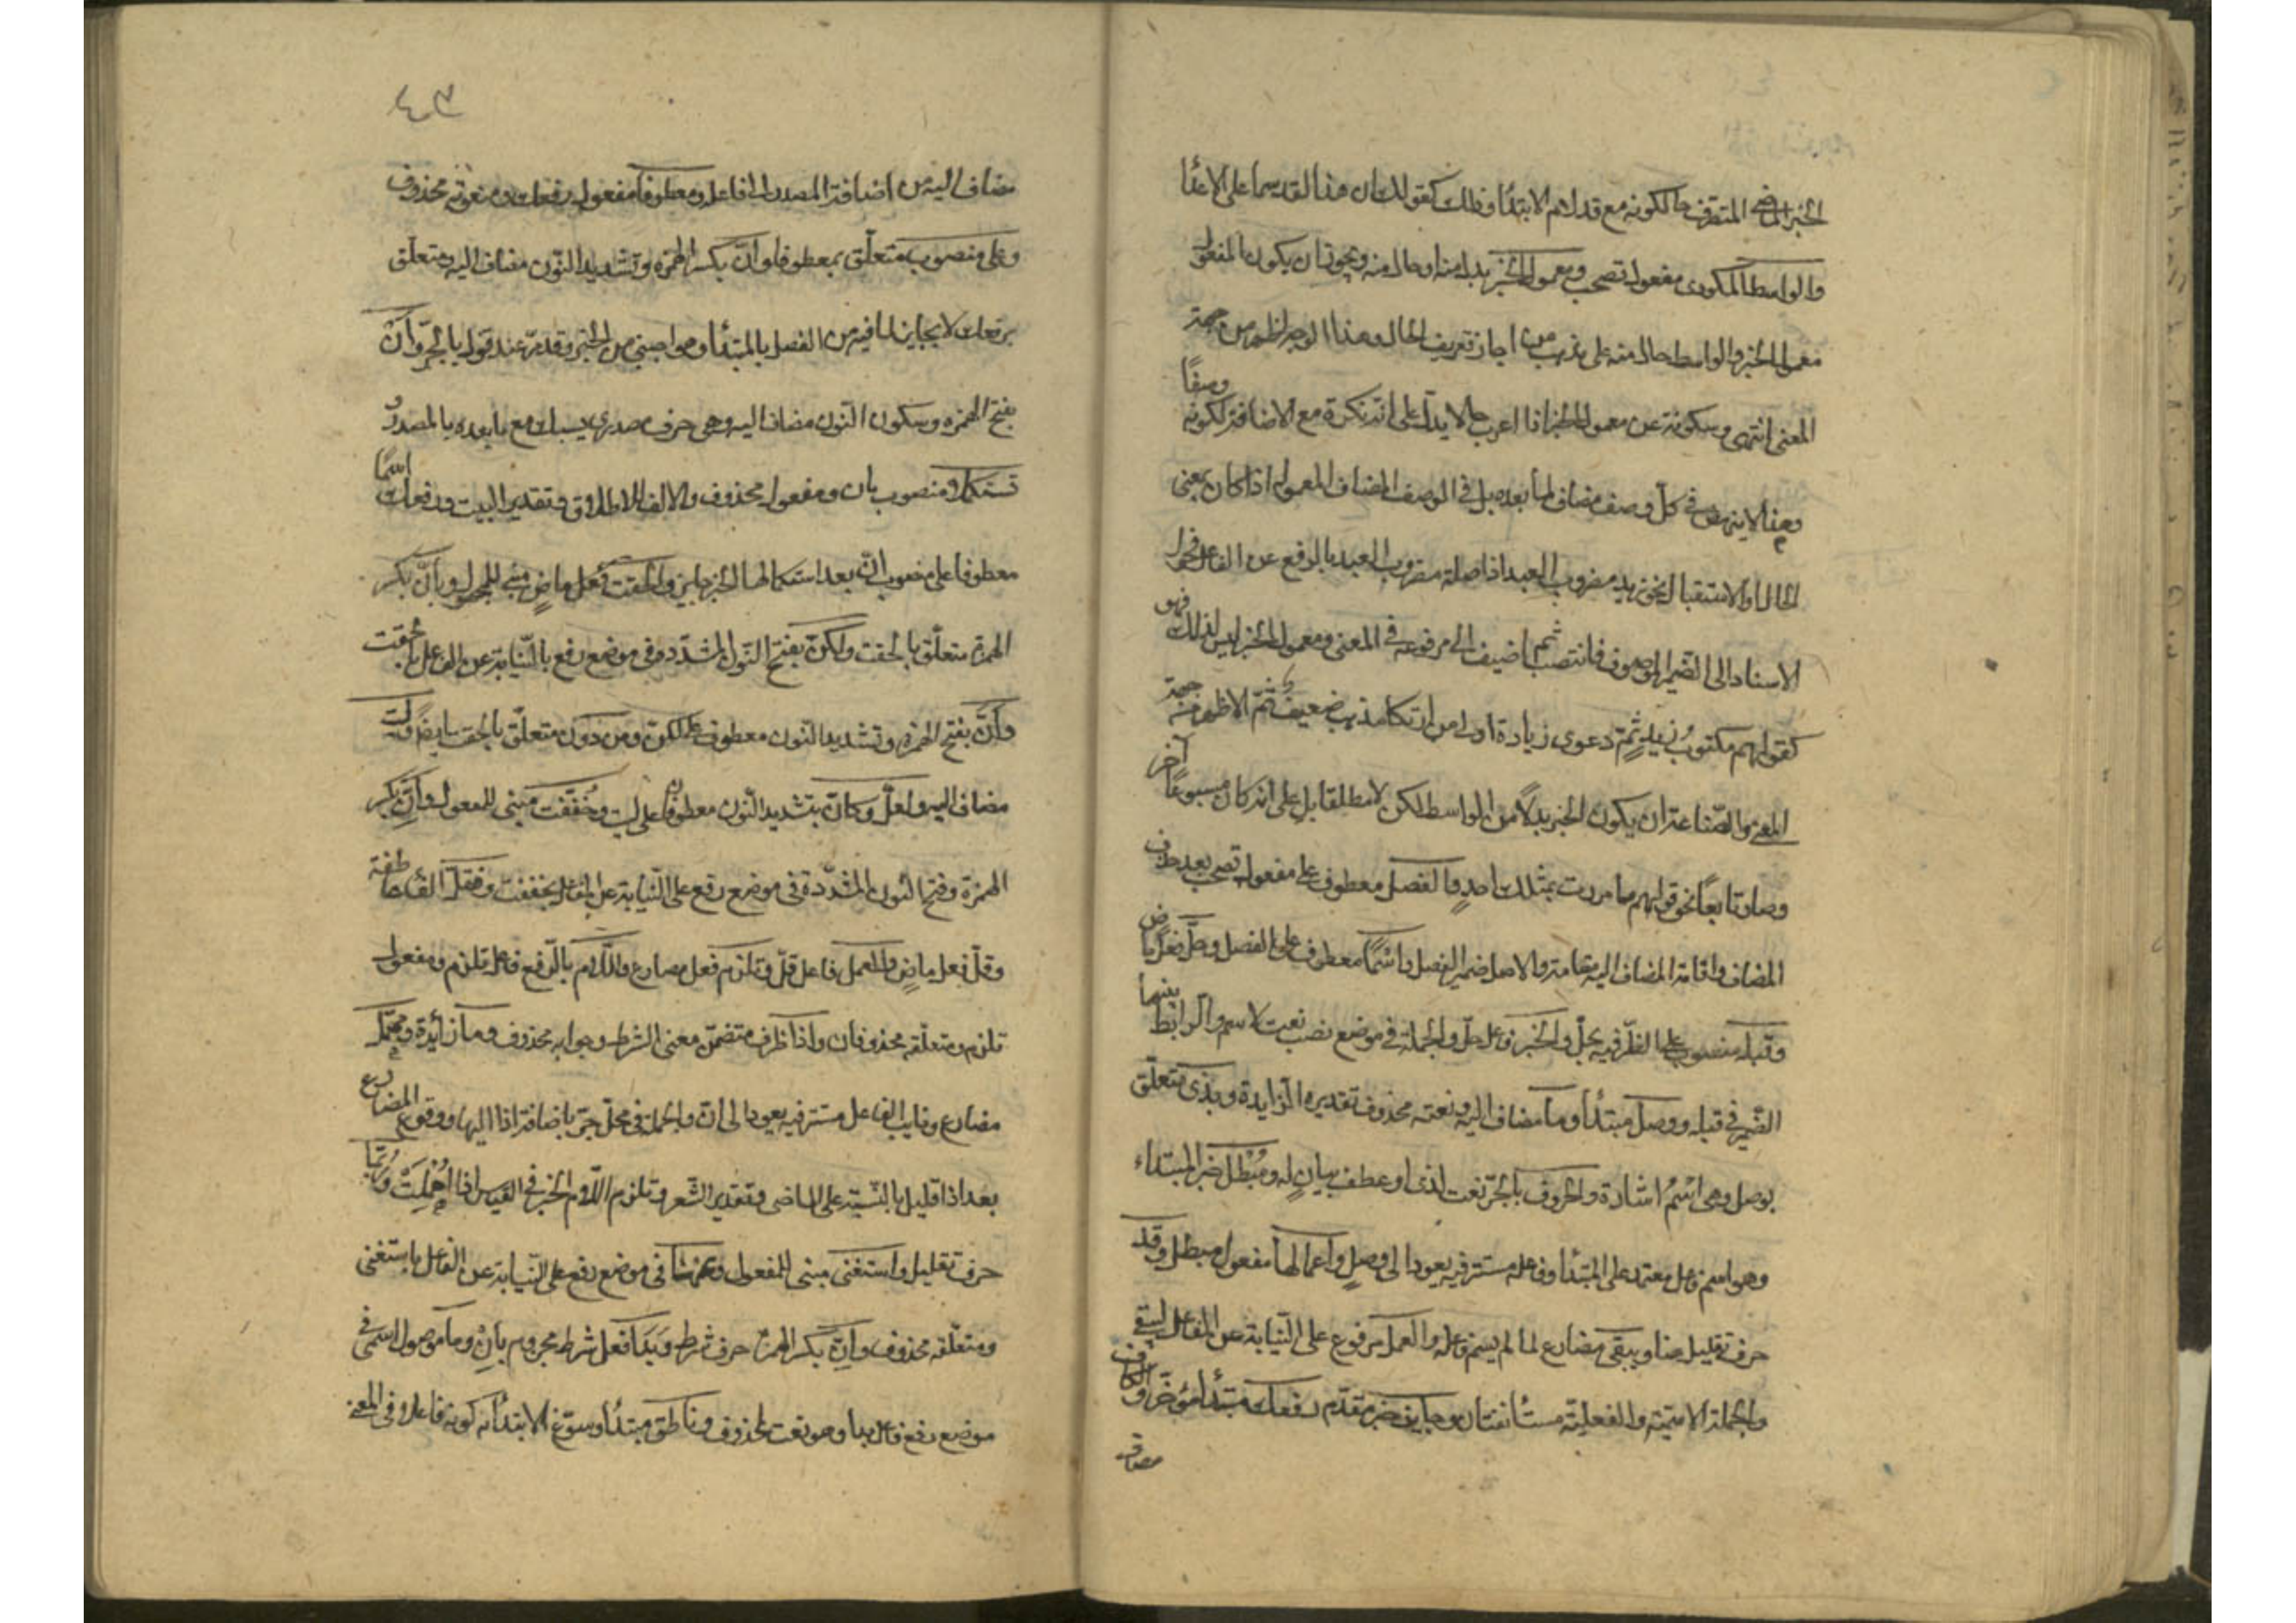 الخبر الماضي المتصرف حالكونه مع قد لام الابتدأ وذلك كقولك ان هذا لقد سما على الاعدا
والواسط المكودى مفعول تصحب ومعمول الخبر بدل منه او حال منه ويجوز ان يكون المفعول
معمول الخبر والواسط حال منه على مذهب من اجاز تعريف الحال وهذا الوجه اظهر من جهة
المعنى انتهى وسكوته عن معمول الخبر اذا اعرب حالا يدل على انه نكرة مع الاضافة لكونه وصفًا
وهذا لا ينهض في كل وصف مضاف لما بعده بل في الوصف المضاف لمعموله اذا كان بمعنى
الحال او الاستقبال نحو زيد مضروب العبد اذ اصله مضروب العبد بالرفع عن الفاعل فحول
الاسناد الى الضمير الموصوف فانتصب ثم اضيف الى مرفوعه في المعنى ومعمول الخبر ليس كذلك فهو
كقولهم مكتوب زيد ثم دعوى زيادة اولى من ارتكاب مذهب ضعيف ثم الاظهر من جهة
المعنى والصناعة ان يكون الخبر بدلا من الواسط لكن لا مطلقا بل على انه كان مسبوقا آخر
وصار تابعًا نحو قولهم ما مررت بمثلك احدٍ والفصل معطوف على مفعول تصحب بعد حذف
المضاف واقامة المضاف اليه مقامه والاصل ضمير الفصل واسمًا معطوف على الفصل وحلّ فعل ماض
وقبله منصوب على الظرفية بحلّ والخبر فاعل حلّ والجملة في موضع نصب نعت لاسم والرابط بينهما
الضمير في قبله ووصل مبتدأ وما مضاف اليه ونعته محذوف تقديره الزايدة وبذى متعلق
بوصل وهى اسم اشارة والحروف بالجر نعت لذى او عطف بيان له ومبطل خبر المبتداء
وهو اسم فاعل معتمد على المبتدأ وفاعله مستتر فيه يعود الى وصلٍ واعمالها مفعول مبطل وقد
حرف تقليل هنا ويبقى مضارع لما لم يسم فاعله والعمل مرفوع على النيابة عن الفاعل ليبقى
والجملة الاسمية والفعلية مستأنفتان وجايز خبر مقدم رفعك مبتدأ مؤخر والكاف
مضاف
٤٠٣
مضاف اليه من اضافة المصدر الى فاعله ومعطوفا مفعول رفعك ومنعوته محذوف
وعلى منصوب متعلق بمعطوفا وان بكسر الهمزة وتشديد النون مضاف اليه ومتعلق
برفعك لا بجايز لما فيه من الفصل بالمبتدأ وهو اجنبي من الخبر وقدمه عند قوله بالجر وان
بفتح الهمزه وسكون النون مضاف اليه وهى حرف مصدرى يسبك مع ما بعده بالمصدر و
تستكمل منصوب بان ومفعوله محذوف والالف للاطلاق وتقدير البيت ورفعك اسمًا
معطوفا على منصوب انّ بعد استكمالها الخبر جايز والحقت فعل ماضٍ مبني للمجهول وبانّ بكسر
الهمزة متعلق بالحقت ولكنّ بفتح النون المشددة في موضع رفع بالنيابة عن الفاعل بالحقت
وانّ بفتح الهمزة وتشديد النون معطوف على لكن ومن دون متعلق بالحقت ايضًا وليت
مضاف اليه ولعلّ وكانّ بتشديد النون معطوفان على ليت وخففت مبنى للمفعول وانّ بكسر
الهمزة وفتح النون المشدّدة في موضع رفع على النّيابة عن الفاعل بخففت وفقلّ الفا عاطفة
وقلّ فعل ماضٍ والعمل فاعل قلّ وتلزم فعل مضارع واللام بالرفع فاعل تلزم ومفعول
تلزم ومتعلقه محذوفان واذا ظرف متضمن معنى الشرط وجوابه محذوف وما زائدة وتهمل
مضارع ونايب الفاعل مستتر فيه يعود الى ان والجملة في محل جر باضافة اذا اليها ووقوع المضارع
بعد اذا قليل بالنسبة على الماضى وتقدير الشعر وتلزم اللام الخبر في القياس اذا اهملت وربّما
حرف تقليل واستغنى مبنى للمفعول وعنها في موضع رفع على النيابة عن الفاعل باستغنى
ومتعلقه محذوف وان بكسر الهمزة حرف شرط وبدا فعل شرط مجروم بان وما موصول اسمى في
موضع رفع فاعل بدا وهو نعت لمحذوف وناطق مبتدأ وسوّغ الابتدأ به كونه فاعلا في المعنى